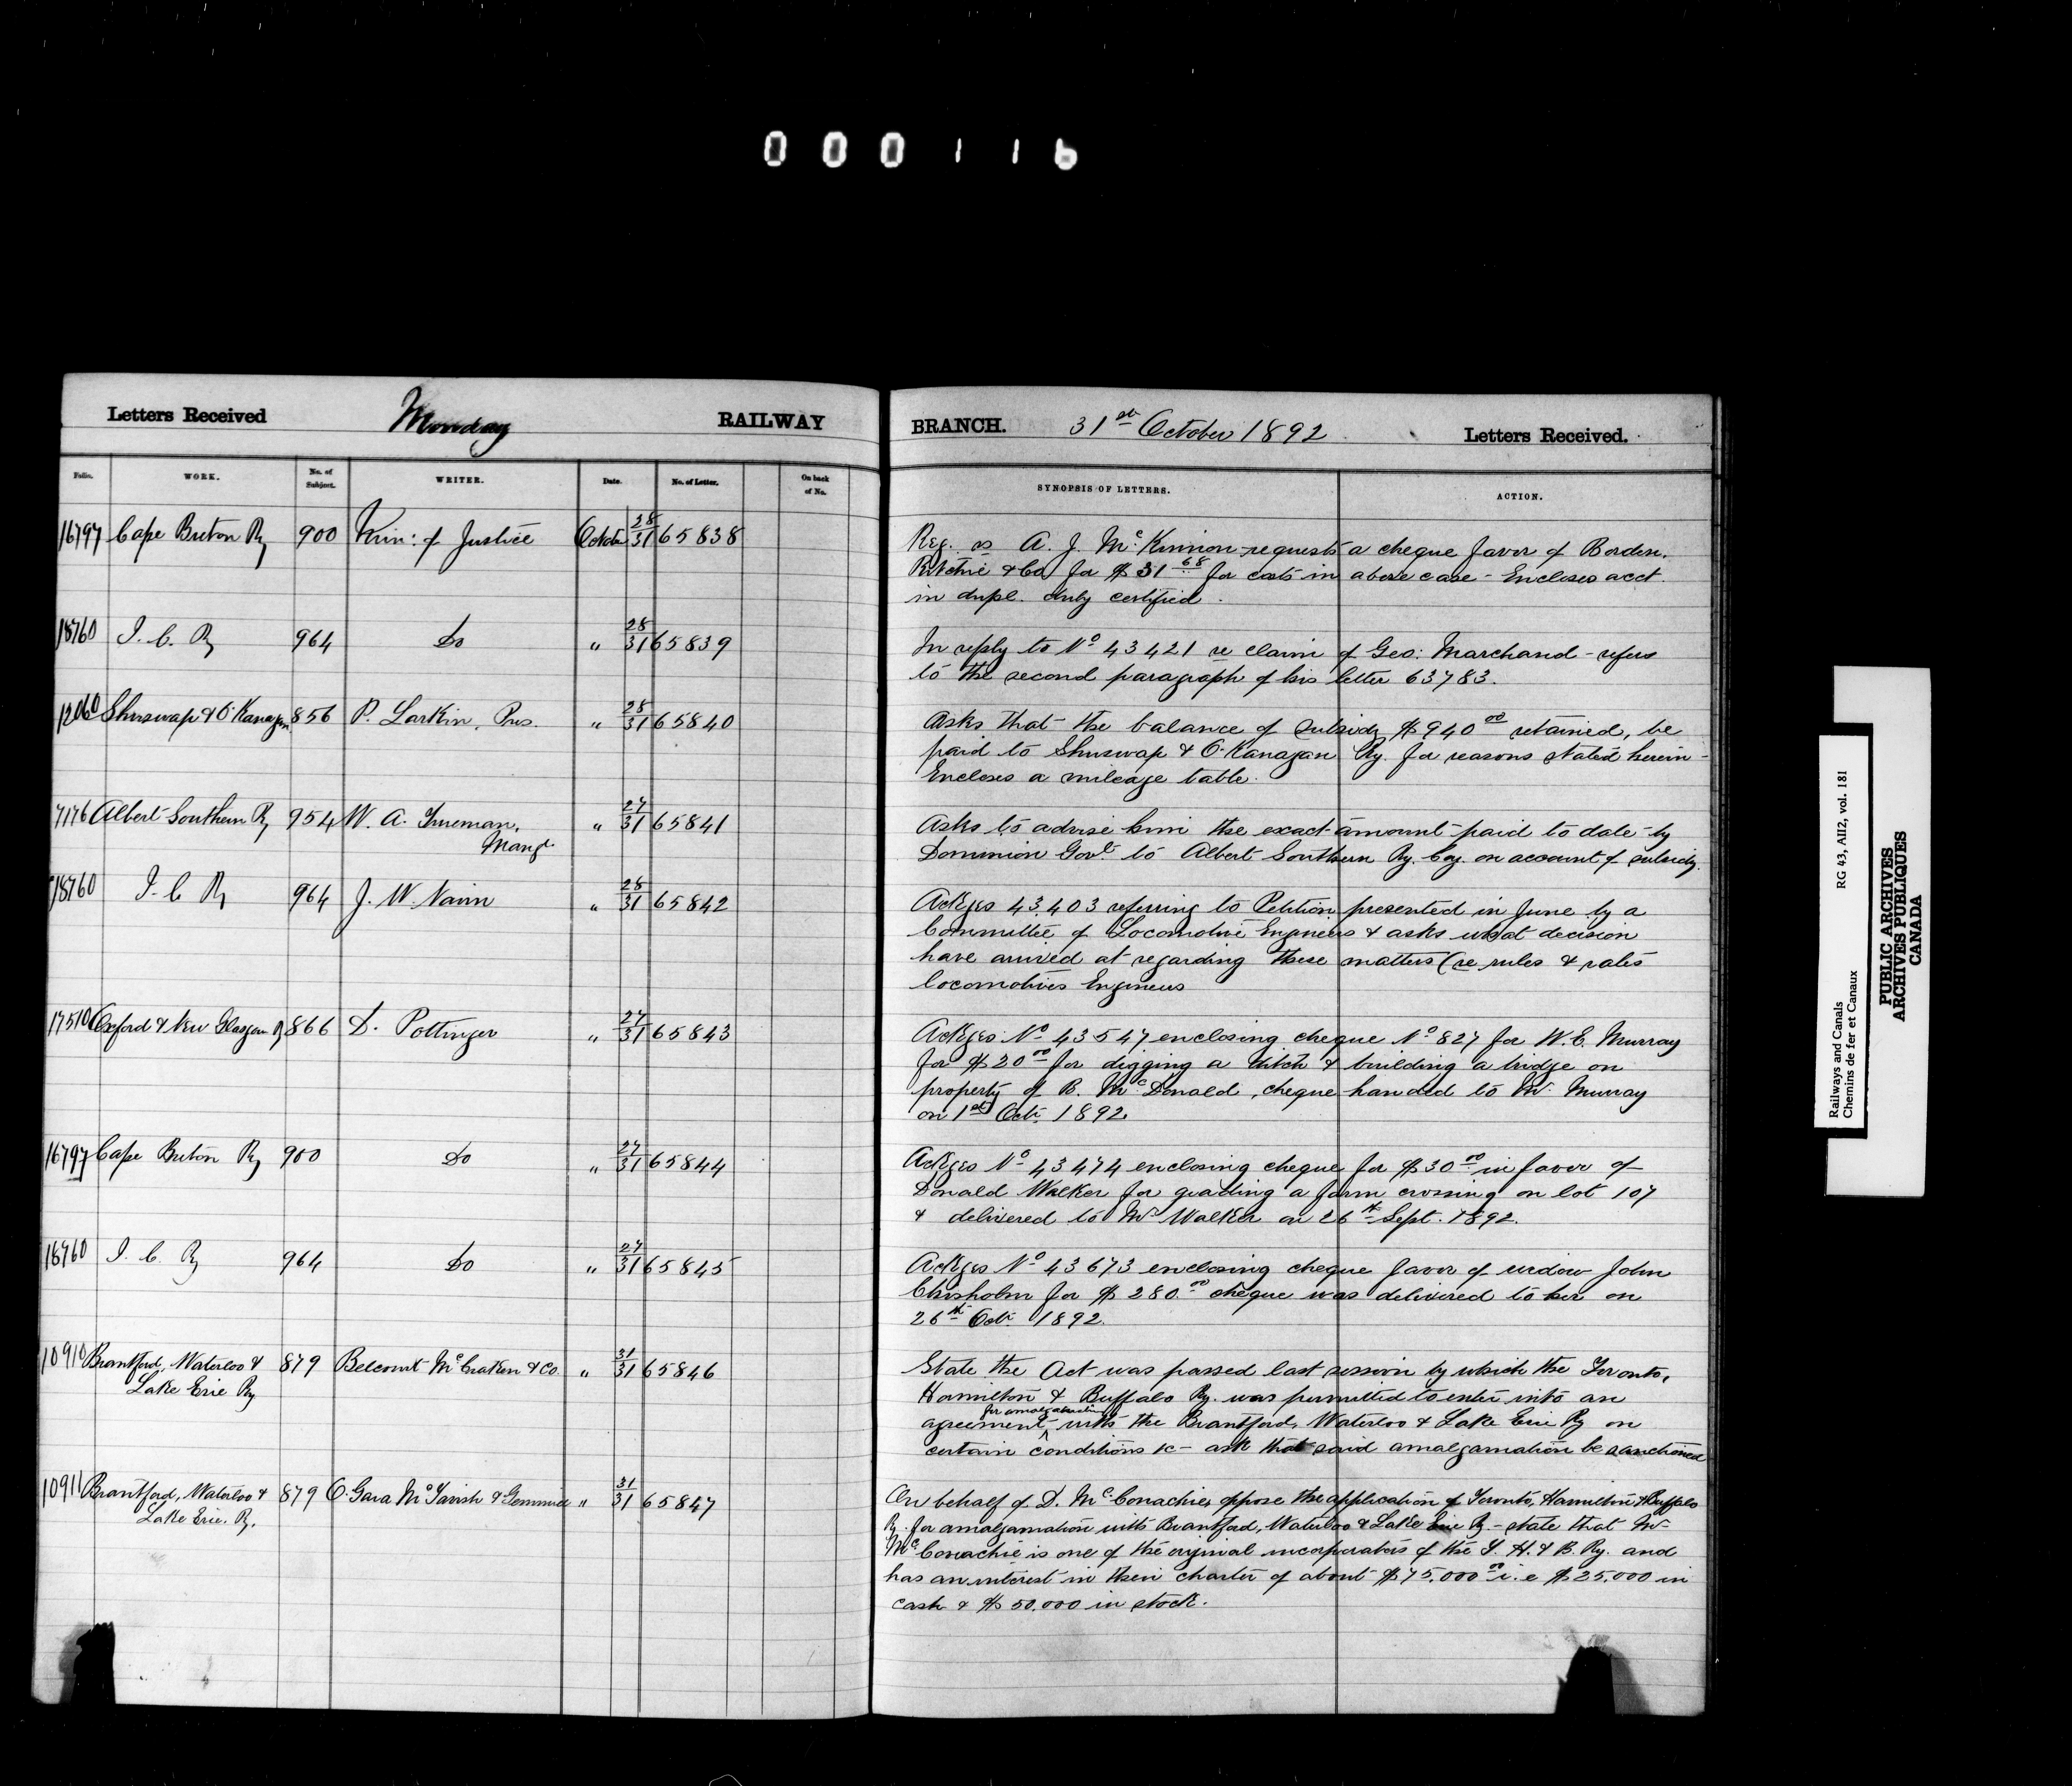 000116
Letters Received Monday RAILWAY
Folio. WORK. No. of Subject. WRITER. Date. No. of Letter. On back of No.
16797 Cape Breton Ry 900 Min: of Justice October 28/31 65838
18760 I. C. Ry 964 Do " 28/31 65839
12060 Shuswap & O'Kanagan 856 P. Larkin, Pres. " 28/31 65840
7176 Albert Southern Ry 954 W. A. Trueman, " 27/31 65841
Mangr.
18760 I. C Ry 964 J. W. Nairn " 28/31 65842
17510 Oxford & New Glasgow Ry 866 D. Pottinger " 27/31 65843
16797 Cape Breton Ry 900 Do " 27/31 65844
18760 I. C. Ry 964 Do " 27/31 65845
10910 Brantford, Waterloo & 879 Belcourt McCraken & Co. " 31/31 65846
Lake Erie Ry
10911 Brantford, Waterloo & 879 O'Gara McTavish & Gemmill " 31/31 65847
Lake Erie. Ry.
BRANCH. 31st October 1892 Letters Received.
SYNOPSIS OF LETTERS. ACTION.
Reg. vs A. J. McKinnon requests a cheque favor of Borden,
Ritchie & Co for $31.68 for costs in above case - Encloses acct.
in dupl. duly certified.
In reply to No 43421 re claim of Geo: Marchand - refers
to the second paragraph of his letter 63783.
Asks that the balance of subsidy $940.00 retained, be
paid to Shuswap & O'Kanagan Ry. for reasons stated herein -
Encloses a mileage table.
Asks to advise him the exact amount paid to date by
Dominion Govt. to Albert Southern Ry. Coy. on account of subsidy.
Ackges 43403 referring to Petition presented in June by a
Committee of Locomotive Engineers & asks what decision
have arrived at regarding these matters (re rules & rates
locomotives Engineers
Ackges No 43547 enclosing cheque No 827 for W. C. Murray
for $20.00 for digging a ditch & building a bridge on
property of B. McDonald, cheque handed to Mr. Murray
on 1st Oct. 1892.
Ackges No 43474 enclosing cheque for $30.00 in favor of
Donald Walker for grading a farm crossing on lot 107
& delivered to Mr Walker on 26th Sept. 1892.
Ackges No 43673 enclosing cheque favor of widow John
Chisholm for $280.00 cheque was delivered to her on
26th Oct. 1892.
State the Act was passed last session by which the Toronto,
Hamilton & Buffalo Ry. was permitted to enter into an
for amalgamation
agreement ^ with the Brantford, Waterloo & Lake Erie Ry on
certain conditions &c - ask that said amalgamation be sanctioned
On behalf of D. McConachie, oppose the application of Toronto, Hamilton & Buffalo
Ry. for amalgamation with Brantford, Waterloo & Lake Erie Ry. - state that Mr
McConachie is one of the original incorporators of the T. H. & B. Ry. and
has an interest in their charter of about $75,000.00 i.e $25,000 in
cash & $50,000 in stock.
Railways and Canals RG 43, AII2, vol. 181
Chemins de fer et Canaux
PUBLIC ARCHIVES
ARCHIVES PUBLIQUES
CANADA